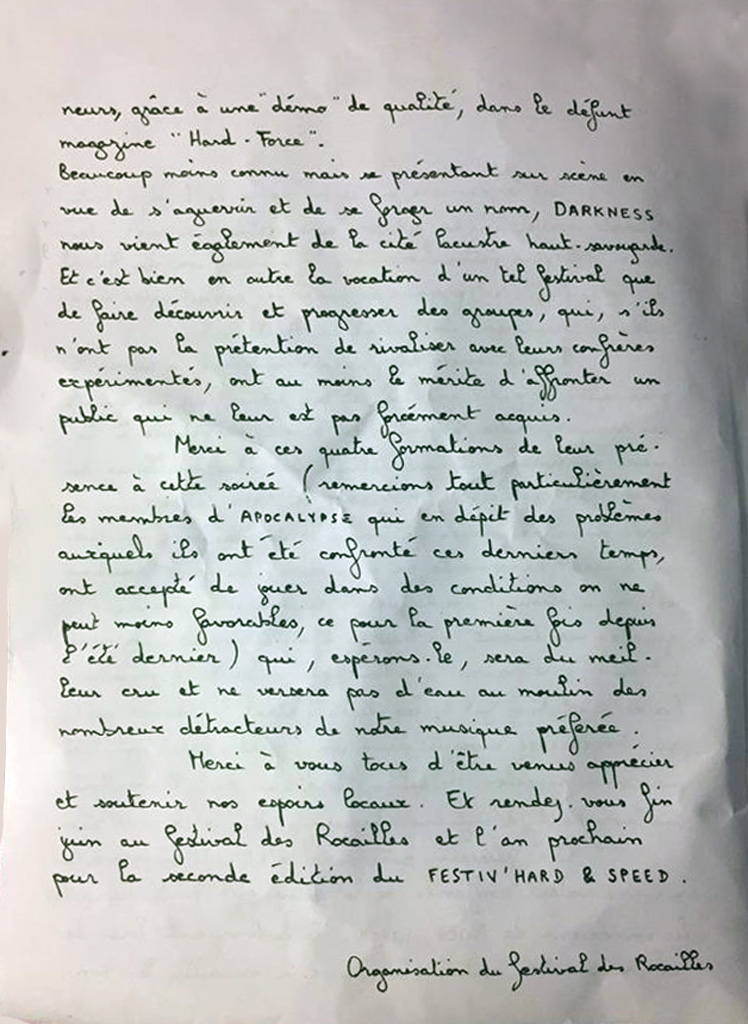 neurs, grâce à une "démo" de qualité, dans le défunt
magazine "Hard-Force".
Beaucoup moins connu mais se présentant sur scène en
vue de s'aguerrir et de se forger un nom, DARKNESS
nous vient également de la cité lacustre haut-savoyarde.
Et c'est bien en outre la vocation d'un tel festival que
de faire découvrir et progresser des groupes, qui, s'ils
n'ont pas la prétention de rivaliser avec leurs confrères
expérimentés, ont au moins le mérite d'affronter un
public qui ne leur est pas forcément acquis.
Merci à ces quatre formations de leur pré-
sence à cette soirée (remercions tout particulièrement
les membres d'APOCALYPSE qui en dépit des problèmes
auxquels ils ont été confronté ces derniers temps,
ont accepté de jouer dans des conditions on ne
peut moins favorables, ce pour la première fois depuis
l'été dernier) qui, espérons-le, sera du meil-
leur cru et ne versera pas d'eau au moulin des
nombreux détracteurs de notre musique préférée.
Merci à vous tous d'être venus apprécier
et soutenir nos espoirs locaux. Et rendez-vous fin
juin au festival des Rocailles et l'an prochain
pour la seconde édition du FESTIV'HARD & SPEED.
Organisation du festival des Rocailles